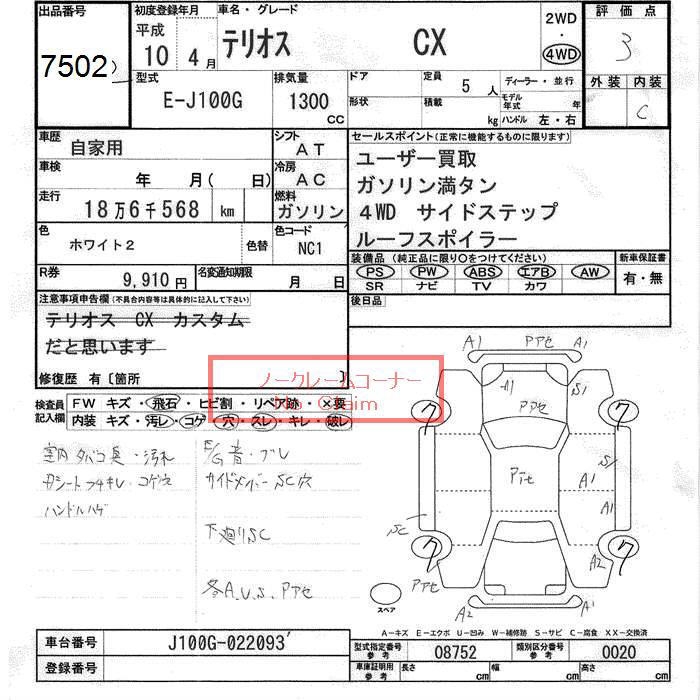 出品番号 初度登録年月 車名・グレード 2WD・4WD 評価点
7502 平成10 4月 テリオス CX 3
型式 排気量 ドア 定員 5人 ディーラー・並行 外装 内装
E-J100G 1300cc 形状 積載 kg モデル年式 年 ハンドル 左・右 C
車歴 自家用 シフト AT
車検 年 月( 日) 冷房 AC
走行 18万6千568 km 燃料 ガソリン
色 ホワイト2 色替 色コード NC1
R券 9,910円 名変通知期限 月 日
セールスポイント(正常に機能するものに限ります)
ユーザー買取
ガソリン満タン
4WD サイドステップ
ルーフスポイラー
装備品 (純正品に限り○をつけてください) 新車保証書
PS PW ABS エアB AW 有・無
SR ナビ TV カワ
後日品
注意事項申告欄(不具合内容等は具体的に記入して下さい)
テリオス CX カスタム
だと思います
修復歴 有〔箇所 〕
ノークレームコーナー
No Claim
検査員記入欄 FW キズ・飛石・ヒビ割・リペア跡・×要
内装 キズ・汚レ・コゲ・穴・スレ・キレ・破レ
室内タバコ臭・汚れ
ハンドルハゲ
下廻りSC
各A.U.S.Pアセ
A1 Pアセ A1
S1
Pアセ
ク ク
Pアセ A1 S1
A1
SC
ク ク
Pアセ A2
スペア A2 A1
A-キズ E-エクボ U-凹み W-補修跡 S-サビ C-腐食 XX-交換済
車台番号 J100G-022093
登録番号
型式指定番号 参考 08752 類別区分番号 参考 0020
車庫証明用 参考 長さ cm 幅 cm 高さ cm